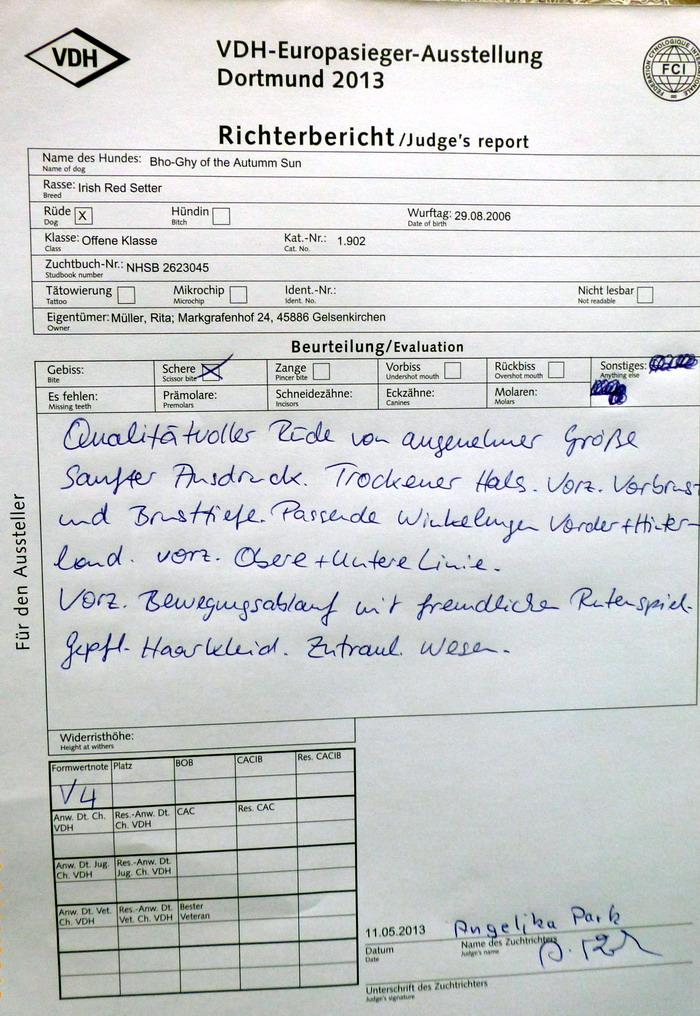 VDH
VDH-Europasieger-Ausstellung
Dortmund 2013
FCI
Richterbericht/Judge's report
Name des Hundes: Bho-Ghy of the Autumm Sun
Name of dog
Rasse: Irish Red Setter
Breed
Rüde X Hündin Wurftag: 29.08.2006
Dog Bitch Date of birth
Klasse: Offene Klasse Kat.-Nr.: 1.902
Class Cat. No.
Zuchtbuch-Nr.: NHSB 2623045
Studbook number
Tätowierung Mikrochip Ident.-Nr.: Nicht lesbar
Tattoo Microchip Ident. No. Not readable
Eigentümer: Müller, Rita; Markgrafenhof 24, 45886 Gelsenkirchen
Owner
Beurteilung/Evaluation
Gebiss: Schere X Zange Vorbiss Rückbiss Sonstiges:
Bite Scissor bite Pincer bite Undershot mouth Overshot mouth Anything else
Es fehlen: Prämolare: Schneidezähne: Eckzähne: Molaren:
Missing teeth Premolars Incisors Canines Molars
Für den Aussteller
Qualitätvoller Rüde von angenehmer Größe
Sanfter Ausdruck. Trockener Hals. Vorz. Vorbrust
und Brusttiefe. Passende Winkelungen Vorder + Hinter-
hand. vorz. Obere + Untere Linie.
Vorz. Bewegungsablauf mit freundlichen Rutenspiel
gepfl. Haarkleid. Zutraul. Wesen.
Widerristhöhe:
Height at withers
Formwertnote Platz BOB CACIB Res. CACIB
V4
Anw. Dt. Ch. VDH Res.-Anw. Dt. Ch. VDH CAC Res. CAC
Anw. Dt. Jug. Ch. VDH Res.-Anw. Dt. Jug. Ch. VDH
Anw. Dt. Vet. Ch. VDH Res.-Anw. Dt. Vet. Ch. VDH Bester Veteran
11.05.2013 Angelika Park
Datum Name des Zuchtrichters
Date Judge's name
Unterschrift des Zuchtrichters
Judge's signature